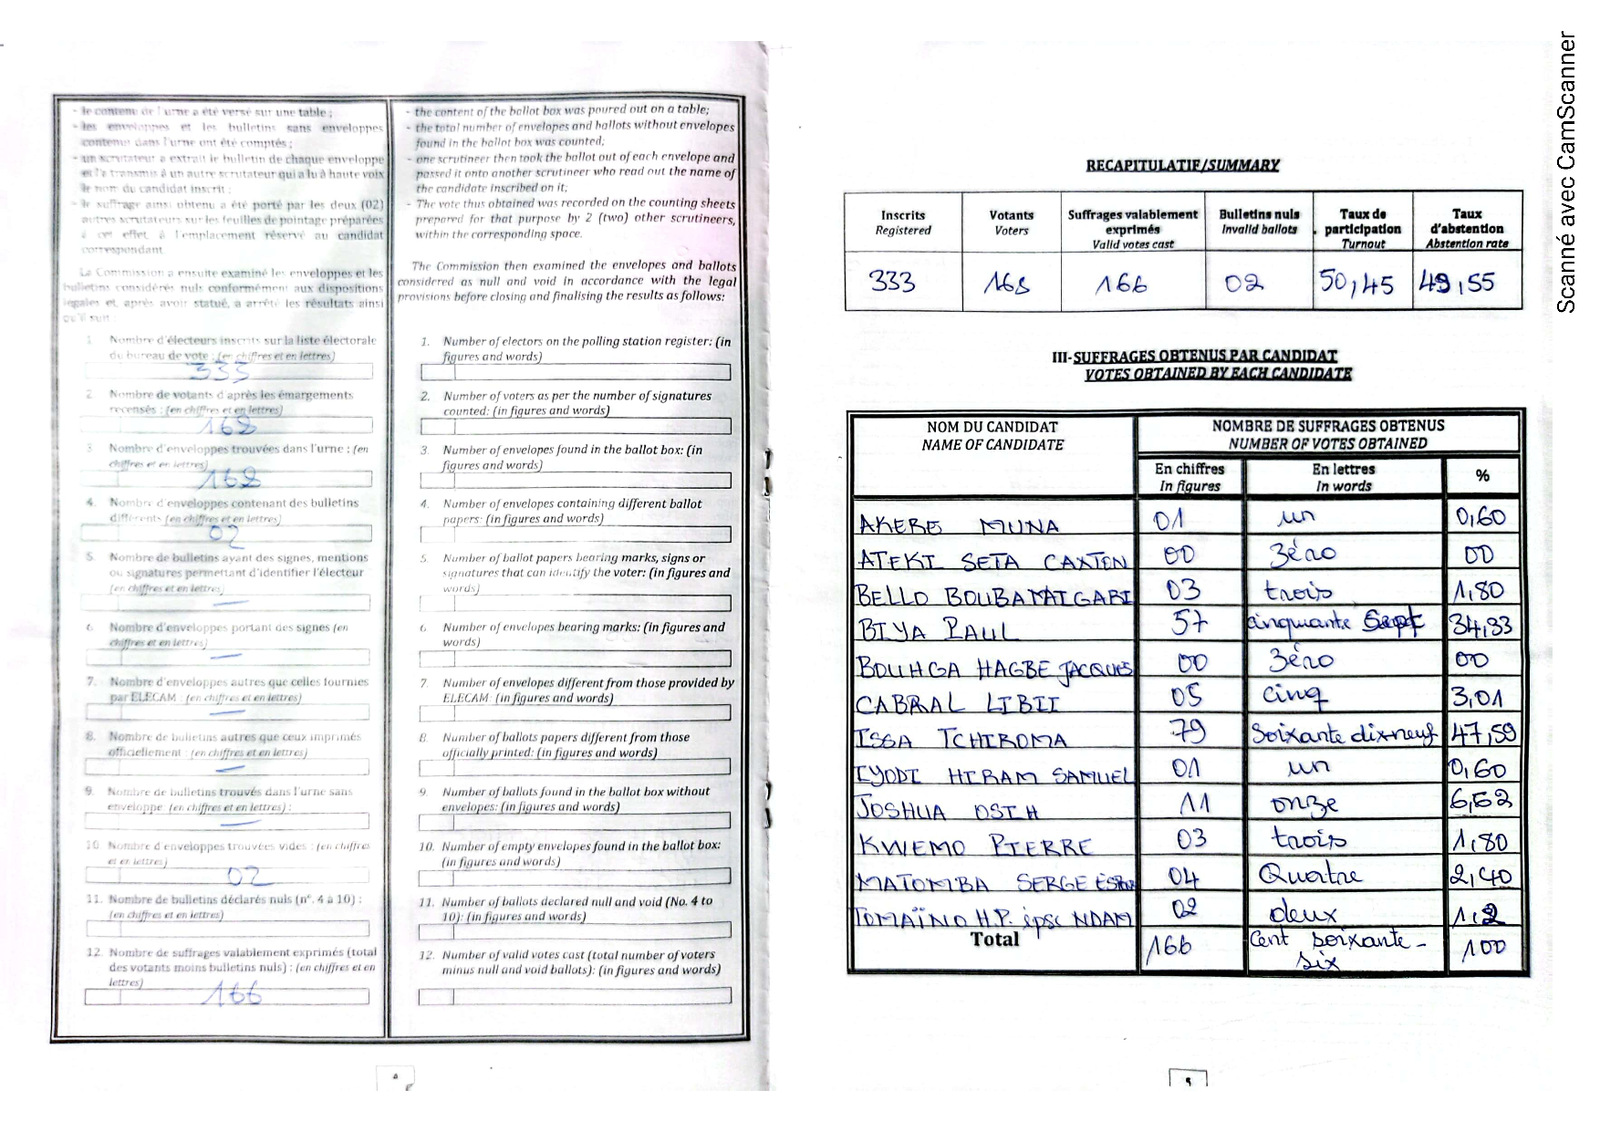 - le contenu de l'urne a été versé sur une table ;
- les enveloppes et les bulletins sans enveloppes
contenus dans l'urne ont été comptés ;
- un scrutateur a extrait le bulletin de chaque enveloppe
et l'a transmis à un autre scrutateur qui a lu à haute voix
le nom du candidat inscrit ;
- le suffrage ainsi obtenu a été porté par les deux (02)
autres scrutateurs sur les feuilles de pointage préparées
à cet effet, à l'emplacement réservé au candidat
correspondant.
La Commission a ensuite examiné les enveloppes et les
bulletins considérés nuls conformément aux dispositions
légales et, après avoir statué, a arrêté les résultats ainsi
qu'il suit :
1. Nombre d'électeurs inscrits sur la liste électorale
du bureau de vote : (en chiffres et en lettres)
333
2. Nombre de votants d'après les émargements
recensés : (en chiffres et en lettres)
168
3. Nombre d'enveloppes trouvées dans l'urne : (en
chiffres et en lettres)
168
4. Nombre d'enveloppes contenant des bulletins
différents (en chiffres et en lettres)
02
5. Nombre de bulletins ayant des signes, mentions
ou signatures permettant d'identifier l'électeur
(en chiffres et en lettres)
—
6. Nombre d'enveloppes portant des signes (en
chiffres et en lettres)
—
7. Nombre d'enveloppes autres que celles fournies
par ELECAM : (en chiffres et en lettres)
—
8. Nombre de bulletins autres que ceux imprimés
officiellement : (en chiffres et en lettres)
—
9. Nombre de bulletins trouvés dans l'urne sans
enveloppe (en chiffres et en lettres) :
—
10. Nombre d'enveloppes trouvées vides : (en chiffres
et en lettres)
02
11. Nombre de bulletins déclarés nuls (n°. 4 à 10) :
(en chiffres et en lettres)
12. Nombre de suffrages valablement exprimés (total
des votants moins bulletins nuls) : (en chiffres et en
lettres)
166
- the content of the ballot box was poured out on a table;
- the total number of envelopes and ballots without envelopes
found in the ballot box was counted;
- one scrutineer then took the ballot out of each envelope and
passed it onto another scrutineer who read out the name of
the candidate inscribed on it;
- The vote thus obtained was recorded on the counting sheets
prepared for that purpose by 2 (two) other scrutineers,
within the corresponding space.
The Commission then examined the envelopes and ballots
considered as null and void in accordance with the legal
provisions before closing and finalising the results as follows:
1. Number of electors on the polling station register: (in
figures and words)
2. Number of voters as per the number of signatures
counted: (in figures and words)
3. Number of envelopes found in the ballot box: (in
figures and words)
4. Number of envelopes containing different ballot
papers: (in figures and words)
5. Number of ballot papers bearing marks, signs or
signatures that can identify the voter: (in figures and
words)
6. Number of envelopes bearing marks: (in figures and
words)
7. Number of envelopes different from those provided by
ELECAM: (in figures and words)
8. Number of ballots papers different from those
officially printed: (in figures and words)
9. Number of ballots found in the ballot box without
envelopes: (in figures and words)
10. Number of empty envelopes found in the ballot box:
(in figures and words)
11. Number of ballots declared null and void (No. 4 to
10): (in figures and words)
12. Number of valid votes cast (total number of voters
minus null and void ballots): (in figures and words)
RECAPITULATIF/SUMMARY
Inscrits Votants Suffrages valablement Bulletins nuls Taux de Taux
Registered Voters exprimés Invalid ballots participation d'abstention
Valid votes cast Turnout Abstention rate
333 168 166 02 50,45 49,55
III-SUFFRAGES OBTENUS PAR CANDIDAT
VOTES OBTAINED BY EACH CANDIDATE
NOM DU CANDIDAT NOMBRE DE SUFFRAGES OBTENUS
NAME OF CANDIDATE NUMBER OF VOTES OBTAINED
En chiffres En lettres %
In figures In words
AKERE MUNA 01 un 0,60
ATEKI SETA CAXTON 00 Zéro 00
BELLO BOUBA MAIGARI 03 trois 1,80
BIYA PAUL 57 cinquante Sept 34,33
BOUHGA HAGBE JACQUES 00 Zéro 00
CABRAL LIBII 05 cinq 3,01
ISSA TCHIROMA 79 Soixante dix-neuf 47,59
IYODI HIRAM SAMUEL 01 un 0,60
JOSHUA OSIH 11 onze 6,62
KWEMO PIERRE 03 trois 1,80
MATOMBA SERGE 04 Quatre 2,40
TOMAÏNO H.P. ipse NDAM 02 deux 1,2
Total 166 Cent soixante-
six 100
5
Scanné avec CamScanner